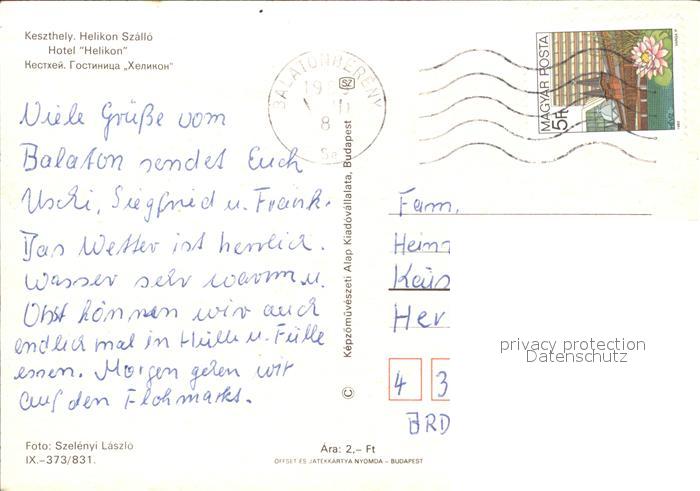 Keszthely. Helikon Szálló
Hotel "Helikon"
Кестхей. Гостиница „Хеликон"
BALATONBERÉNY
SZ
8
MAGYAR POSTA
5Ft
Viele Grüße vom
Balaton sendet Euch
Uschi, Siegfried u. Frank.
Das Wetter ist herrlich.
Wasser sehr warm u.
Obst können wir auch
endlich mal in Hülle u. Fülle
essen. Morgen gehen wir
auf den Flohmarkt.
Foto: Szelényi László
IX.–373/831.
© Képzőművészeti Alap Kiadóvállalata, Budapest
Ára: 2,– Ft
OFFSET ÉS JÁTÉKKÁRTYA NYOMDA – BUDAPEST
Fam.
Hein
Kais
Her
4 3
BRD
privacy protection
Datenschutz